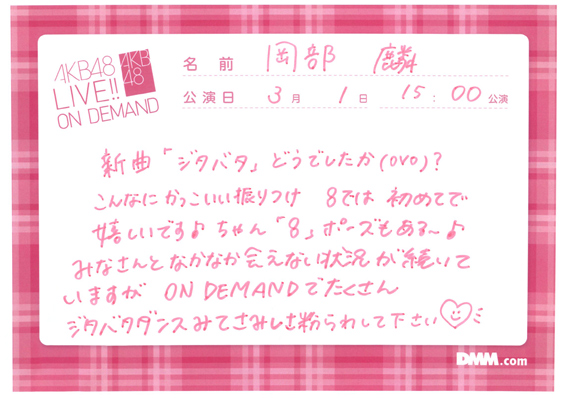 AKB48
LIVE!!
ON DEMAND
AKB
48
名前 岡部 麟
公演日 3月 1日 15:00公演
新曲「ジタバタ」どうでしたか(OVO)?
こんなにかっこいい振りつけ 8では 初めてで
嬉しいです♪ちゃん「8」ポーズもある〜♪
みなさんとなかなか会えない状況が続いて
いますが ON DEMANDでたくさん
ジタバタダンスみてさみしさ紛らわして下さい
DMM.com